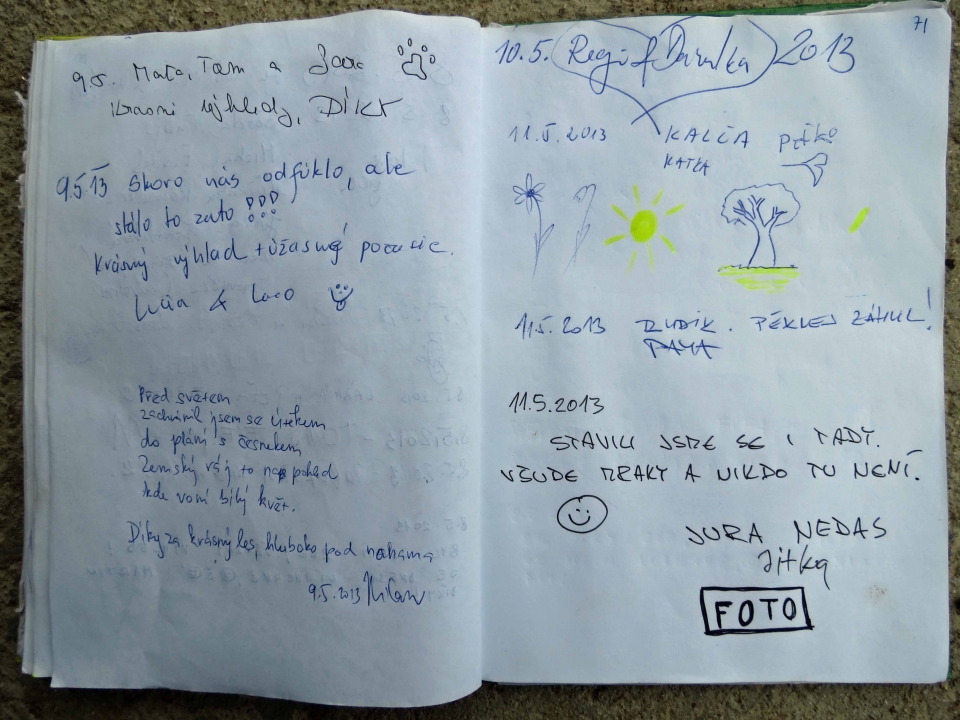 9.5. Maťa, Tom a
Krásné výhledy, DÍKY
9.5.13 Skoro nás odfúklo, ale
stálo to zato !!!
Krásný výhled + úžasné
Lucia & Laco
Před světem
zachránil jsem se útěkem
do plání s česnekem
Zemský ráj to na pohled
kde voní bílý květ.
Díky za krásný les, hluboko pod nohama
9.5.2013 Milan
71
10.5. Regi & Darulka 2013
11.5.2013 KALČA
KATKA
11.5.2013 RUDIK.
11.5.2013
STAVILI JSME SE I TADY.
VŠUDE MRAKY A NIKDO TU NENÍ.
JURA NEDAS
Jitka
FOTO